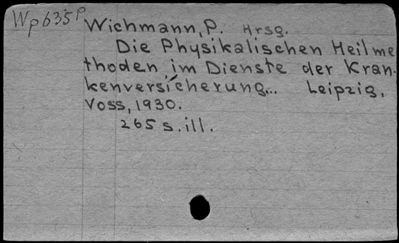 Wp635P
Wichmann, P. Hrsg.
Die Physikalischen Heilme
thoden im Dienste der Kran-
kenversicherung... Leipzig,
Voss, 1930.
265 s. ill.